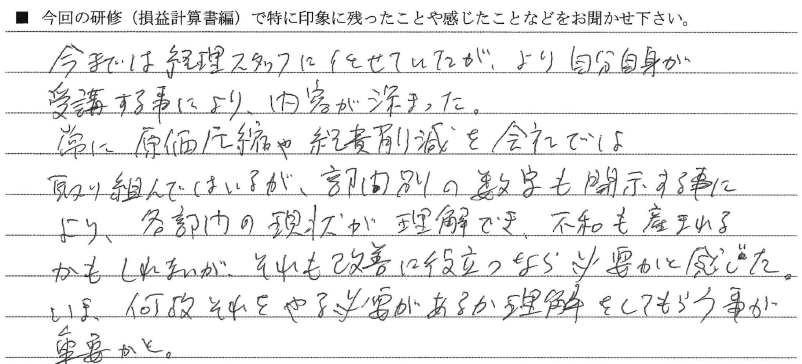 ■ 今回の研修（損益計算書編）で特に印象に残ったことや感じたことなどをお聞かせ下さい。
今までは経理スタッフに任せていたが、より自分自身が
受講する事により、内容が深まった。
常に原価圧縮や経費削減を会社では
取り組んではいるが、部門別の数字も開示する事に
より、各部内の現状が理解でき、不和も産まれる
かもしれないが、それも改善に役立つなら必要かと感じた。
いま、何故それをやる必要があるか理解をしてもらう事が
重要かと。